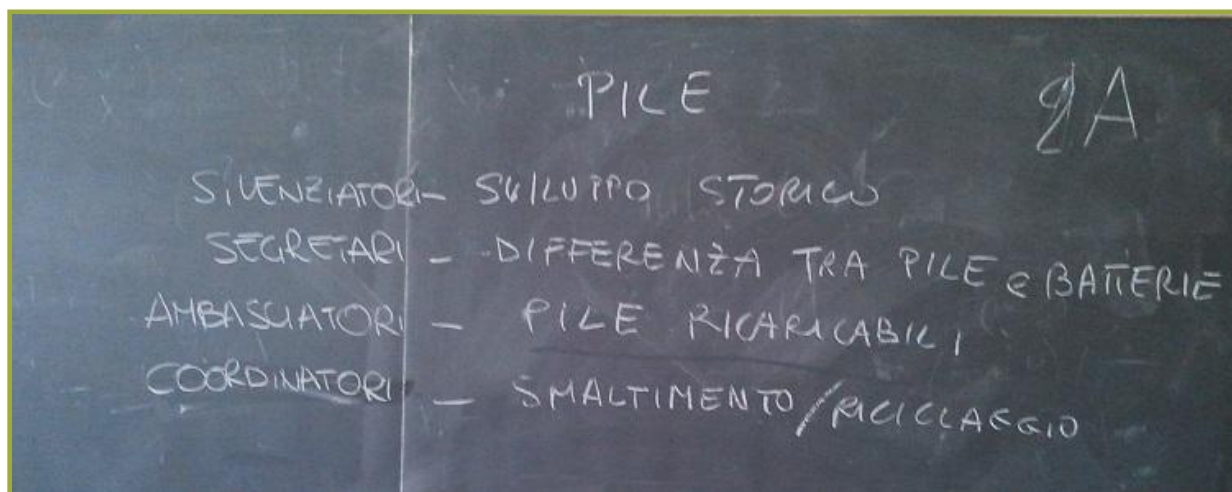 PILE 2A
SILENZIATORI - SVILUPPO STORICO
SEGRETARI - DIFFERENZA TRA PILE e BATTERIE
AMBASCIATORI - PILE RICARICABILI
COORDINATORI - SMALTIMENTO/RICICLAGGIO